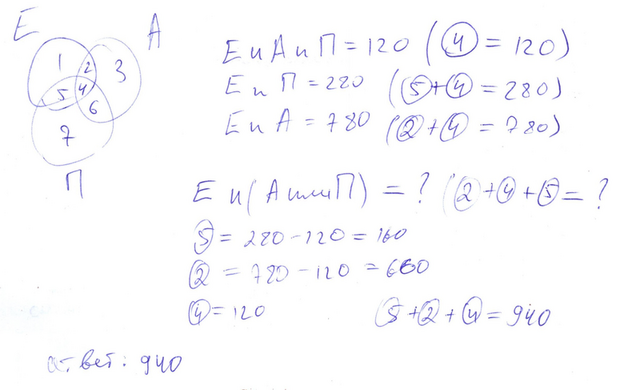 Е А
1 2 3
5 4
6
7
П
Е и А и П = 120 (④ = 120)
Е и П = 280 (⑤+④ = 280)
Е и А = 780 (②+④ = 780)
Е и (А или П) = ? (②+④+⑤ = ?
⑤ = 280 - 120 = 160
② = 780 - 120 = 660
④ = 120 ⑤+②+④ = 940
ответ: 940